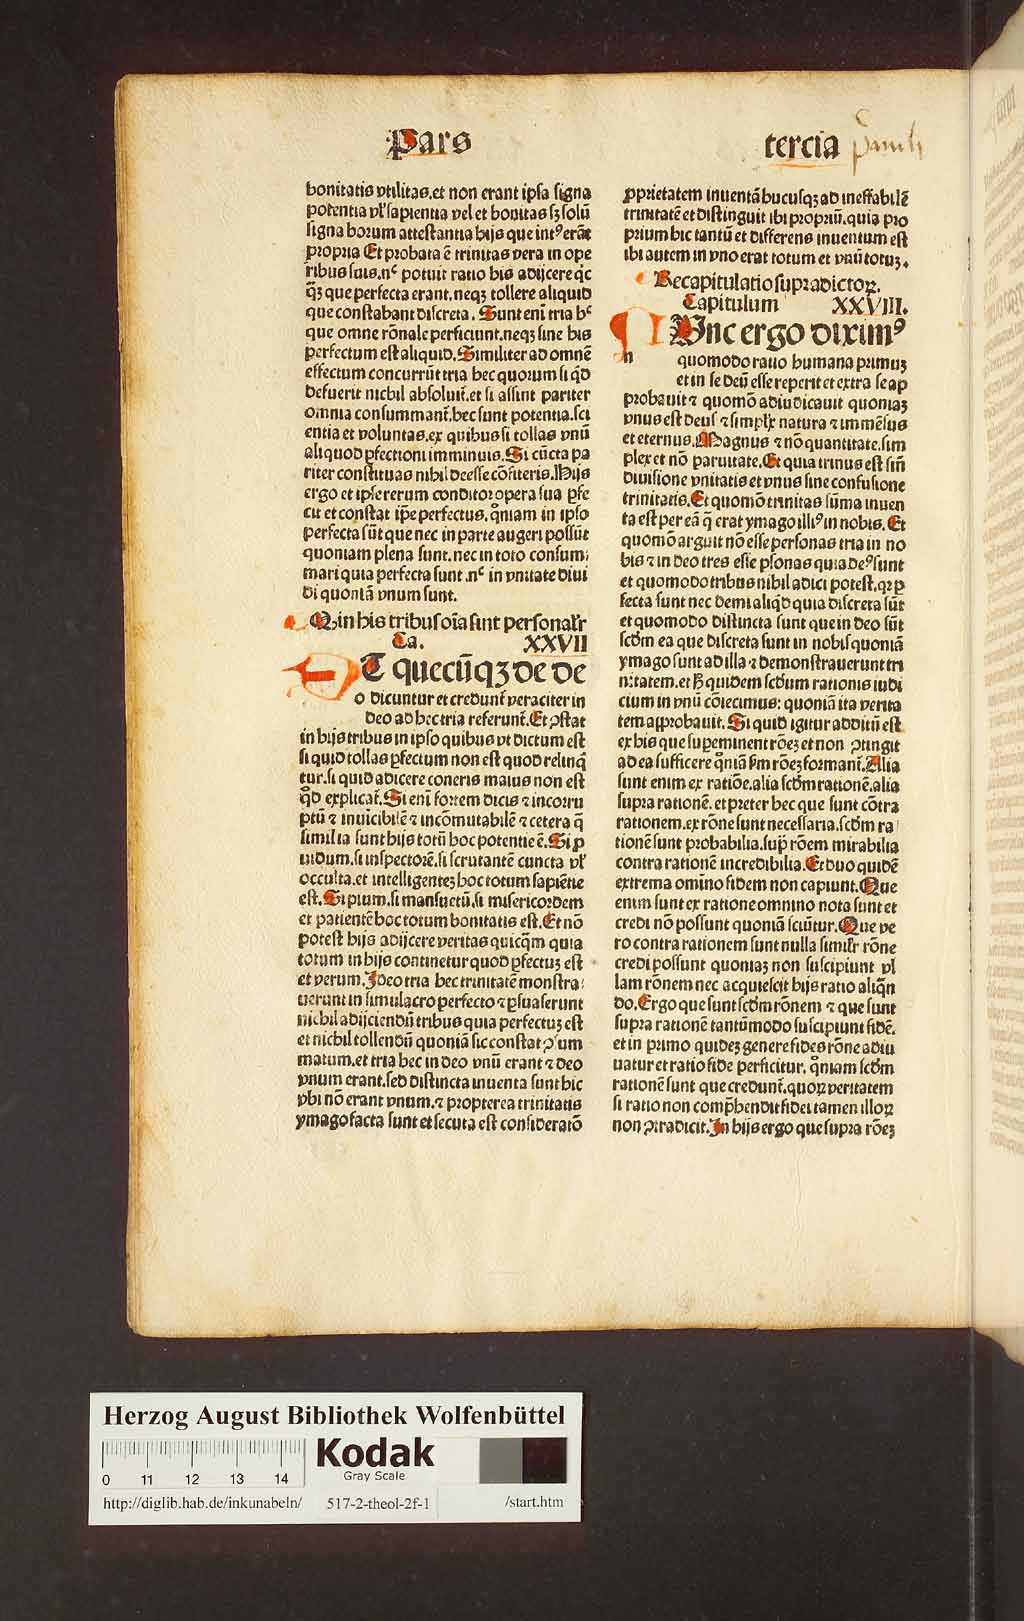 Pars
bonitatis vtilitas.et non erant ipsa signa
potentia vl' sapientia vel et bonitas sȝ solū
signa horum attestantia hijs que intꝰ erāt
propria Et probata ē trinitas vera in ope
ribus suis.nᶜ potuit ratio his adijcere qͥcͣ
qͣȝ que perfecta erant.neqȝ tollere aliquid
que constabant discreta. Sunt enī tria hᶜ
que omne rōnale perficiunt.neqȝ sine his
perfectum est aliquid.Similiter ad omnē
effectum concurrūt tria hec quorum si qͥd
defuerit nichil absoluit̄.et si assint pariter
omnia consummant̄.hec sunt potentia.sci
entia et voluntas.ex quibus si tollas vnū
aliquod ꝑfectioni imminuis.Si cūcta pa
riter constituas nihil deesse cōfiteris.Hijs
ergo et ipse rerum conditor opera sua ꝑfe
cit et constat ip̄e perfectus.qͦniam in ipso
perfecta sūt que nec in parte augeri possūt
quoniam plena sunt.nec in toto consum
mari quia perfecta sunt.nᶜ in vnitate diui
di quoniā vnum sunt.
Q in his tribus oīa sint personalr̄
Ca. XXVII
ET quecūqȝ de de
o dicuntur et credunt̄ veraciter in
deo ad hec tria referunt̄.Et ꝯstat
in hijs tribus in ipso quibus vt dictum est
si quid tollas ꝑfectum non est quod relinq̄
tur.si quid adicere coneris maius non est
qͦd explicat̄.Si enī fortem dicis ⁊ incorru
ptū ⁊ inuicibilē ⁊ incōmutabilē ⁊ cetera q̄
similia sunt hijs totū hoc potentie ē.Si ꝓ
uidum.si inspectorē.si scrutantē cuncta vl'
occulta.et intelligenteȝ hoc totum sapiētie
est.Si pium.si mansuetū.si misericordem
et patientē hoc totum bonitatis est.Et nō
potest hijs adijcere veritas quicqͣm quia
totum in hijs continetur quod ꝑfectuȝ est
et verum.Ideo tria hec trinitatem monstra
uerunt in simulacro perfecto ⁊ ꝑsuaserunt
nichil adijciendū tribus quia perfectuȝ est
et nichil tollendū quoniā sic constat ꝯsum
matum.et tria hec in deo vnū erant ⁊ deo
vnum erant.sed distincta inuenta sunt hic
vbi nō erant vnum.⁊ propterea trinitatis
ymago facta sunt et secuta est consideratō
tercia
ꝓprietatem inuentā hucusqȝ ad ineffabilē
trinitatē et distinguit ibi propriū.quia pro
prium hic tantū et differens inuentum est
ibi autem in vno erat totum et vnū totuȝ.
Recapitulatio supradictoꝝ.
Capitulum XXVIII.
NVnc ergo diximꝰ
n
quomodo ratio humana primuȝ
et in se deū esse reperit et extra se ap
probauit ⁊ quomō adiudicauit quoniaȝ
vnus est deus ⁊ simplx̄ natura ⁊ immēsus
et eternus.Magnus ⁊ nō quantitate.sim
plex et nō paruitate.Et quia trinus est sin̄
diuisione vnitatis et vnus sine confusione
trinitatis.Et quomō trinitas sūma inuen
ta est per eā q̄ erat ymago illiꝰ in nobis.Et
quomō arguit nō esse personas tria in no
bis ⁊ in deo tres esse ꝑsonas quia deꝰ sunt
et quomodo tribus nihil adici potest.qꝛ ꝑ
fecta sunt nec demi aliqͥd quia discreta sūt
et quomodo distincta sunt que in deo sūt
scd̄m ea que discreta sunt in nobis quoniā
ymago sunt ad illa ⁊ demonstrauerunt tri
nitatem.et hͦ quidem scd̄um rationis iudi
cium in vnū cōiecimus: quoniā ita verita
tem approbauit.Si quid igitur additū est
ex his que supeminent rōeȝ et non ꝯtingit
ad ea sufficere qͦniā sm̄ rōeȝ formant̄.Alia
sunt enim ex ratiōe.alia scd̄m rationē.alia
supra rationē.et preter hec que sunt cōtra
rationem.ex rōne sunt necessaria.scd̄m ra
tionē sunt probabilia.supͣ rōem mirabilia
contra rationē incredibilia.Et duo quidē
extrema omīno fidem non capiunt.Que
enim sunt ex ratione omnino nota sunt et
credi nō possunt quoniā sciūtur.Que ve
ro contra rationem sunt nulla similr̄ rōne
credi possunt quoniaȝ non suscipiunt vl
lam rōnem nec acquiescit hijs ratio aliqn̄
do.Ergo que sunt scd̄m rōnem ⁊ que sunt
supra rationē tantūmodo suscipiunt fidē.
et in primo quideȝ genere fides rōne adiu
uatur et ratio fide perficitur.qͦniam scd̄m
rationē sunt que credunt̄.quoꝝ veritatem
si ratio non comp̄hendit fidei tamen illoꝝ
non ꝯtradicit.In hijs ergo que supra rōeȝ
Herzog August Bibliothek Wolfenbüttel
Kodak
Gray Scale
0 11 12 13 14
http://diglib.hab.de/inkunabeln/ 517-2-theol-2f-1 /start.htm